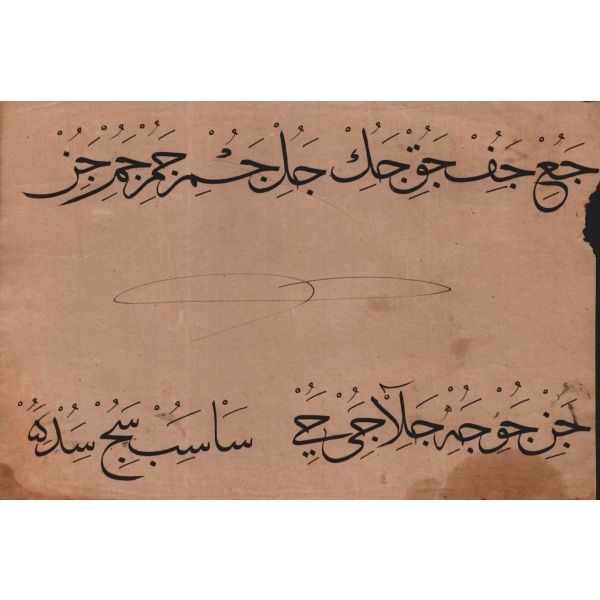 جع جف جق جك جل جم جم جم جن
جن جو جه جلا جى جي سا سب سج سد ه